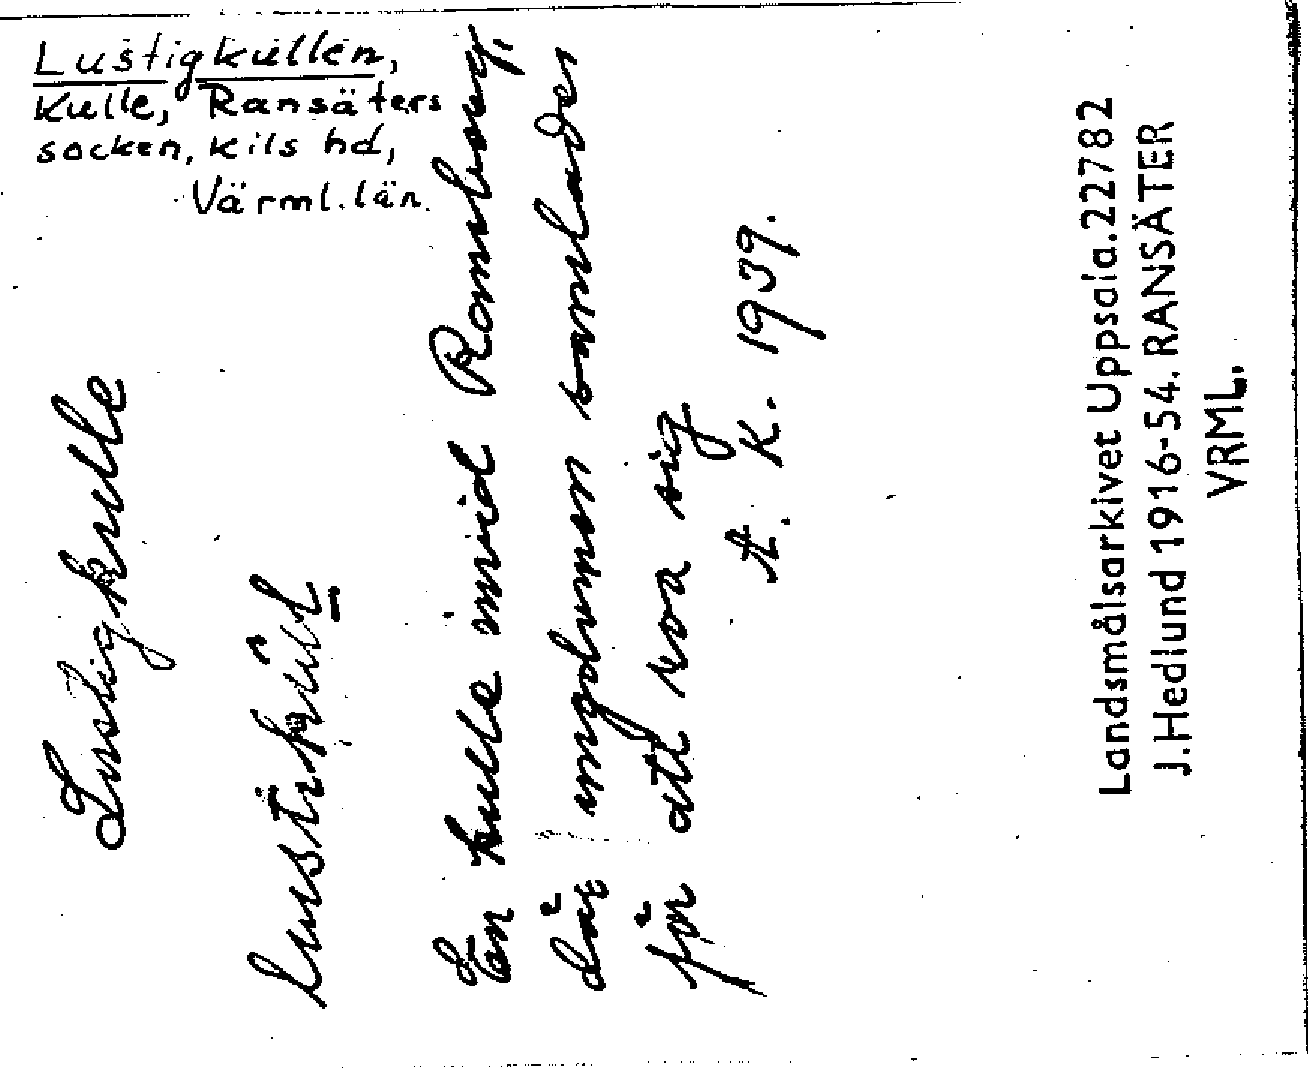 Lustigkullen,
Kulle, Ransäters
socken, Kils hd,
Värml. län.
Lustigkulle
En kulle invid Ransberg,
där ungdomen samlades
för att roa sig
A. K. 1939.
Landsmålsarkivet Uppsala. 22782
J. Hedlund 1916-54. RANSÄTER
VRML.